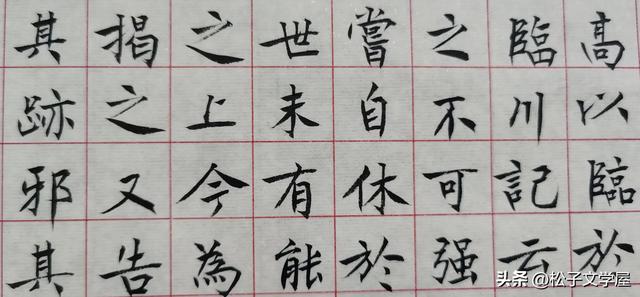 高以臨於
臨川記云
之不可强
嘗自休於
世未有能
之上今為
揭之又告
其跡邪其
头条 @松子文学屋